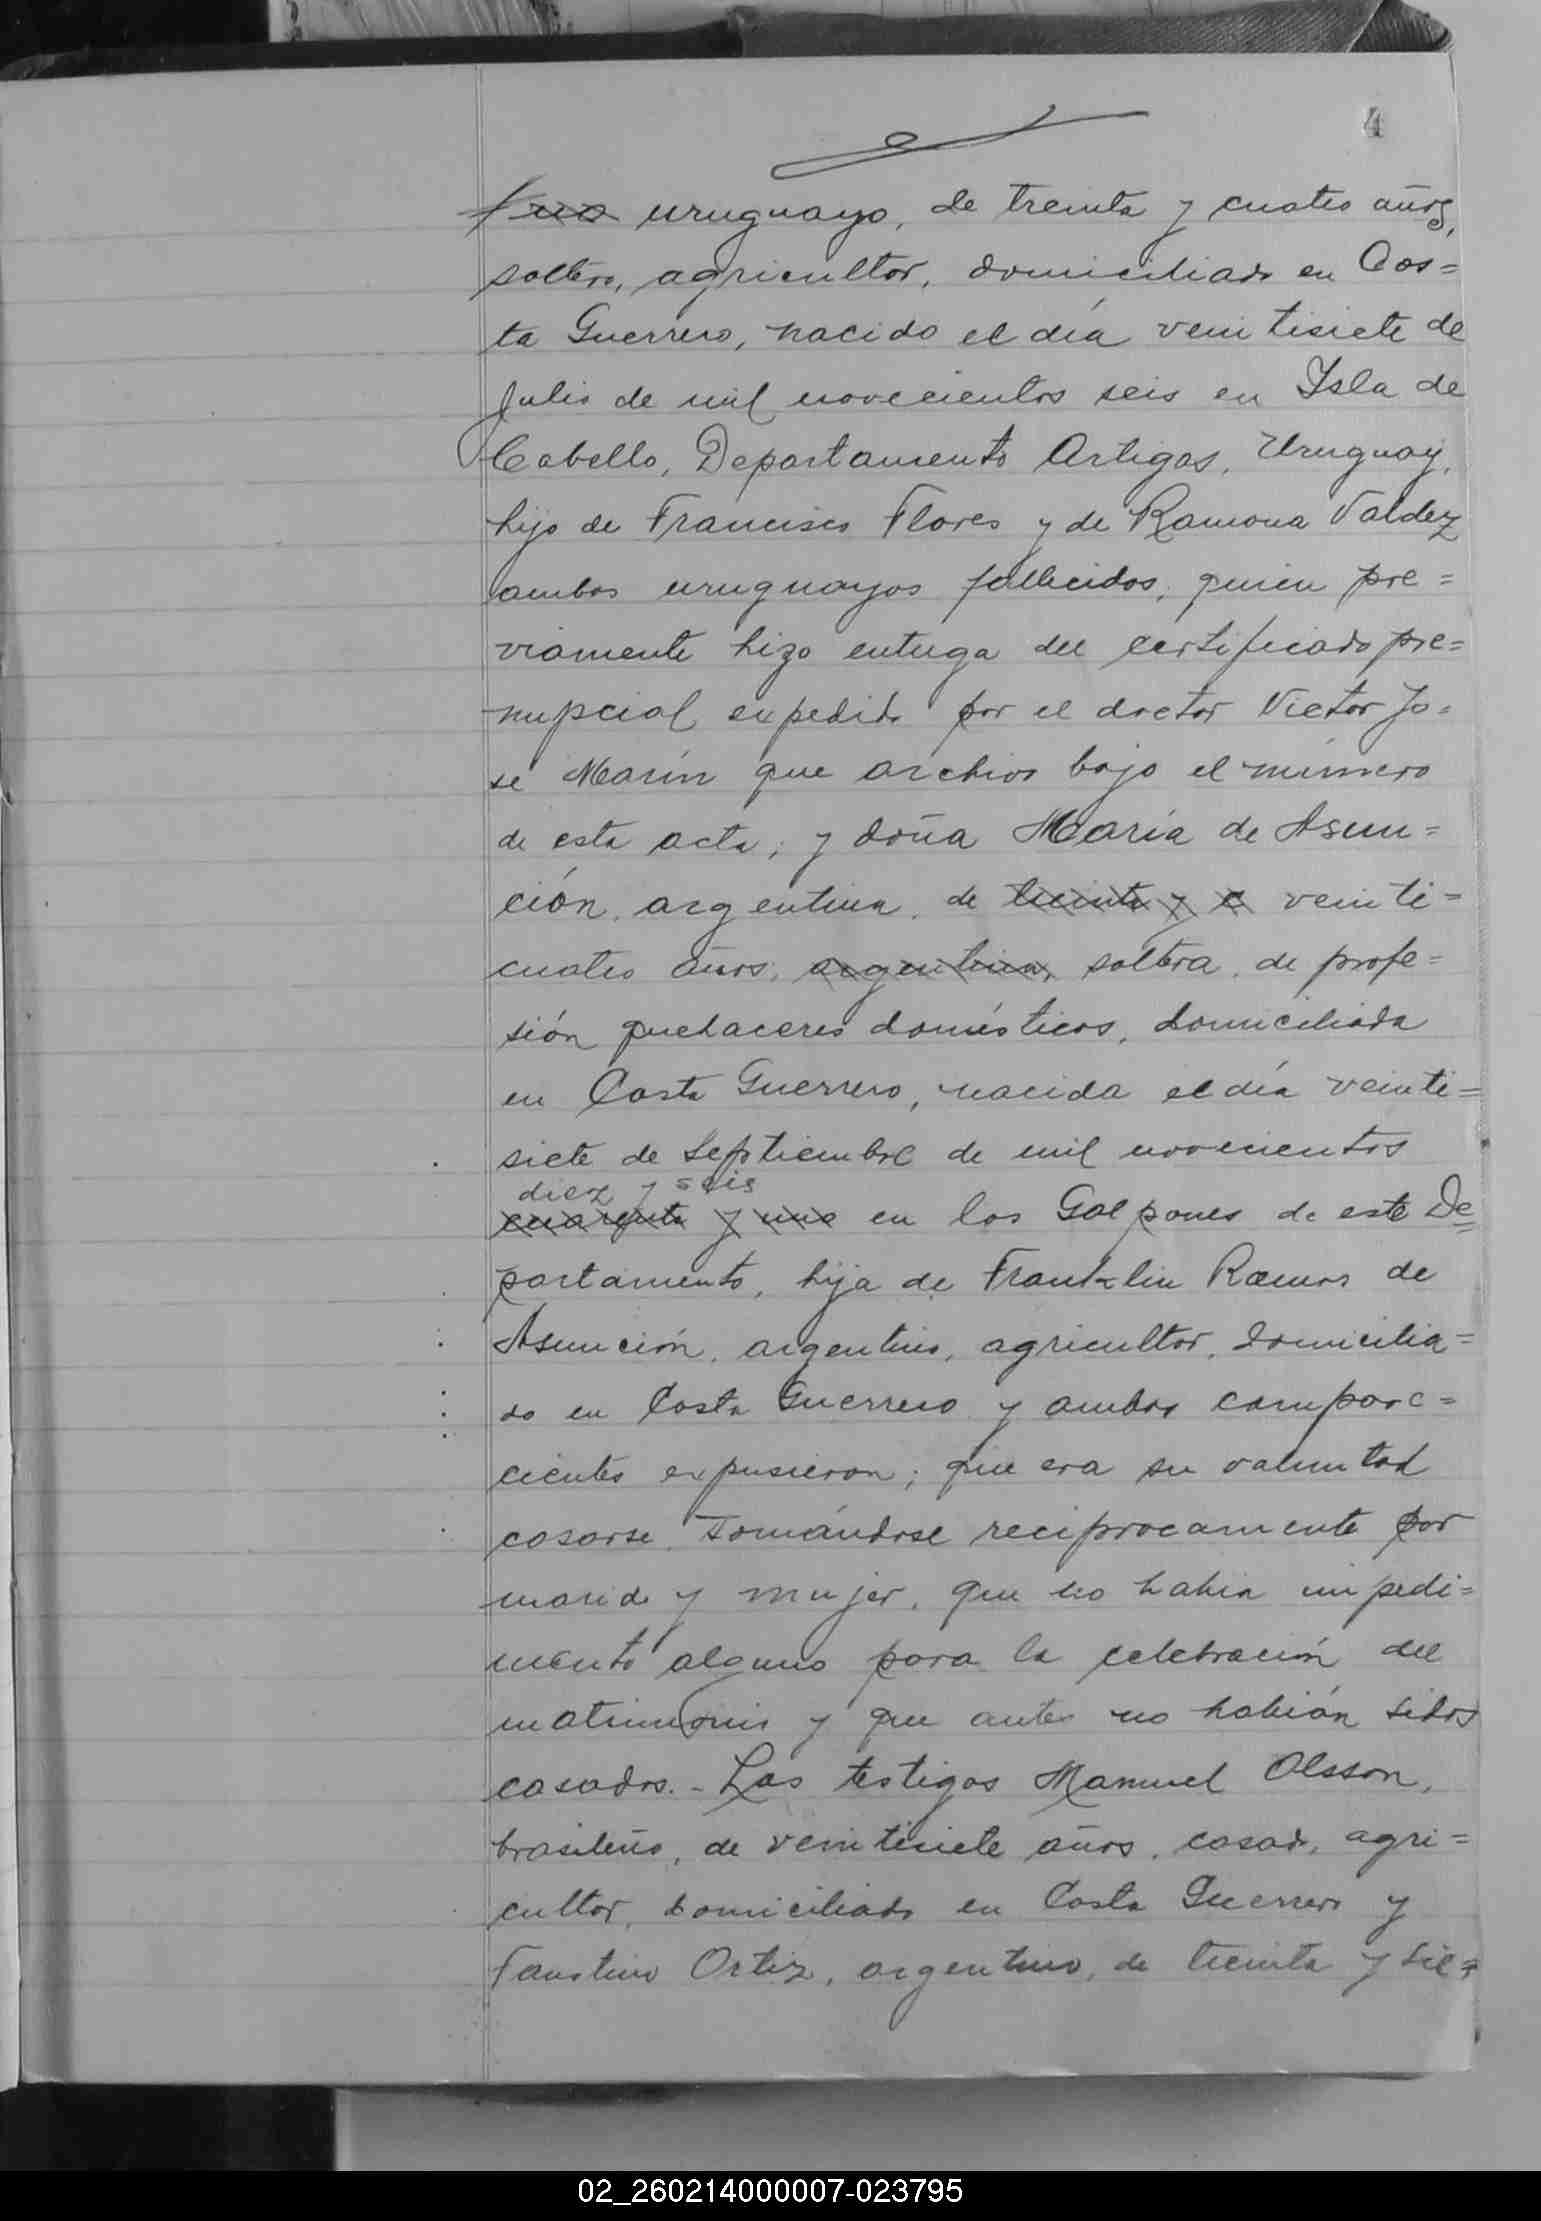 4
uruguayo, de treinta y cuatro años,
soltero, agricultor, domiciliado en Cos=
ta Guerrero, nacido el día veintisiete de
Julio de mil novecientos seis en Isla de
Cabello, Departamento Artigas, Uruguay,
hijo de Francisco Flores y de Ramona Valdez
ambos uruguayos fallecidos, quien pre=
viamente hizo entrega del certificado pre=
nupcial expedido por el doctor Victor Jo=
sé Marín que archivo bajo el número
de esta acta; y doña María de Asun=
ción, argentina, de treinta y c veinti=
cuatro años, argentina, soltera, de profe=
sión quehaceres domésticos, domiciliada
en Costa Guerrero, nacida el día veinti=
siete de Septiembre de mil novecientos
diez y seis
cuarenta y uno en los Galpones de este De=
partamento, hija de Franklin Ramos de
Asunción, argentino, agricultor, domicilia=
do en Costa Guerrero y ambos compare=
cientes expusieron; que era su voluntad
casarse tomándose reciprocamente por
marido y mujer, que no habia impedi=
mento alguno para la celebración del
matrimonio y que antes no habián sidos
casados.- Los testigos Manuel Olsson,
brasileño, de veintisiete años, casado, agri=
cultor, domiciliado en Costa Guerrero y
Faustino Ortiz, argentino, de treinta y sie=
02_260214000007-023795